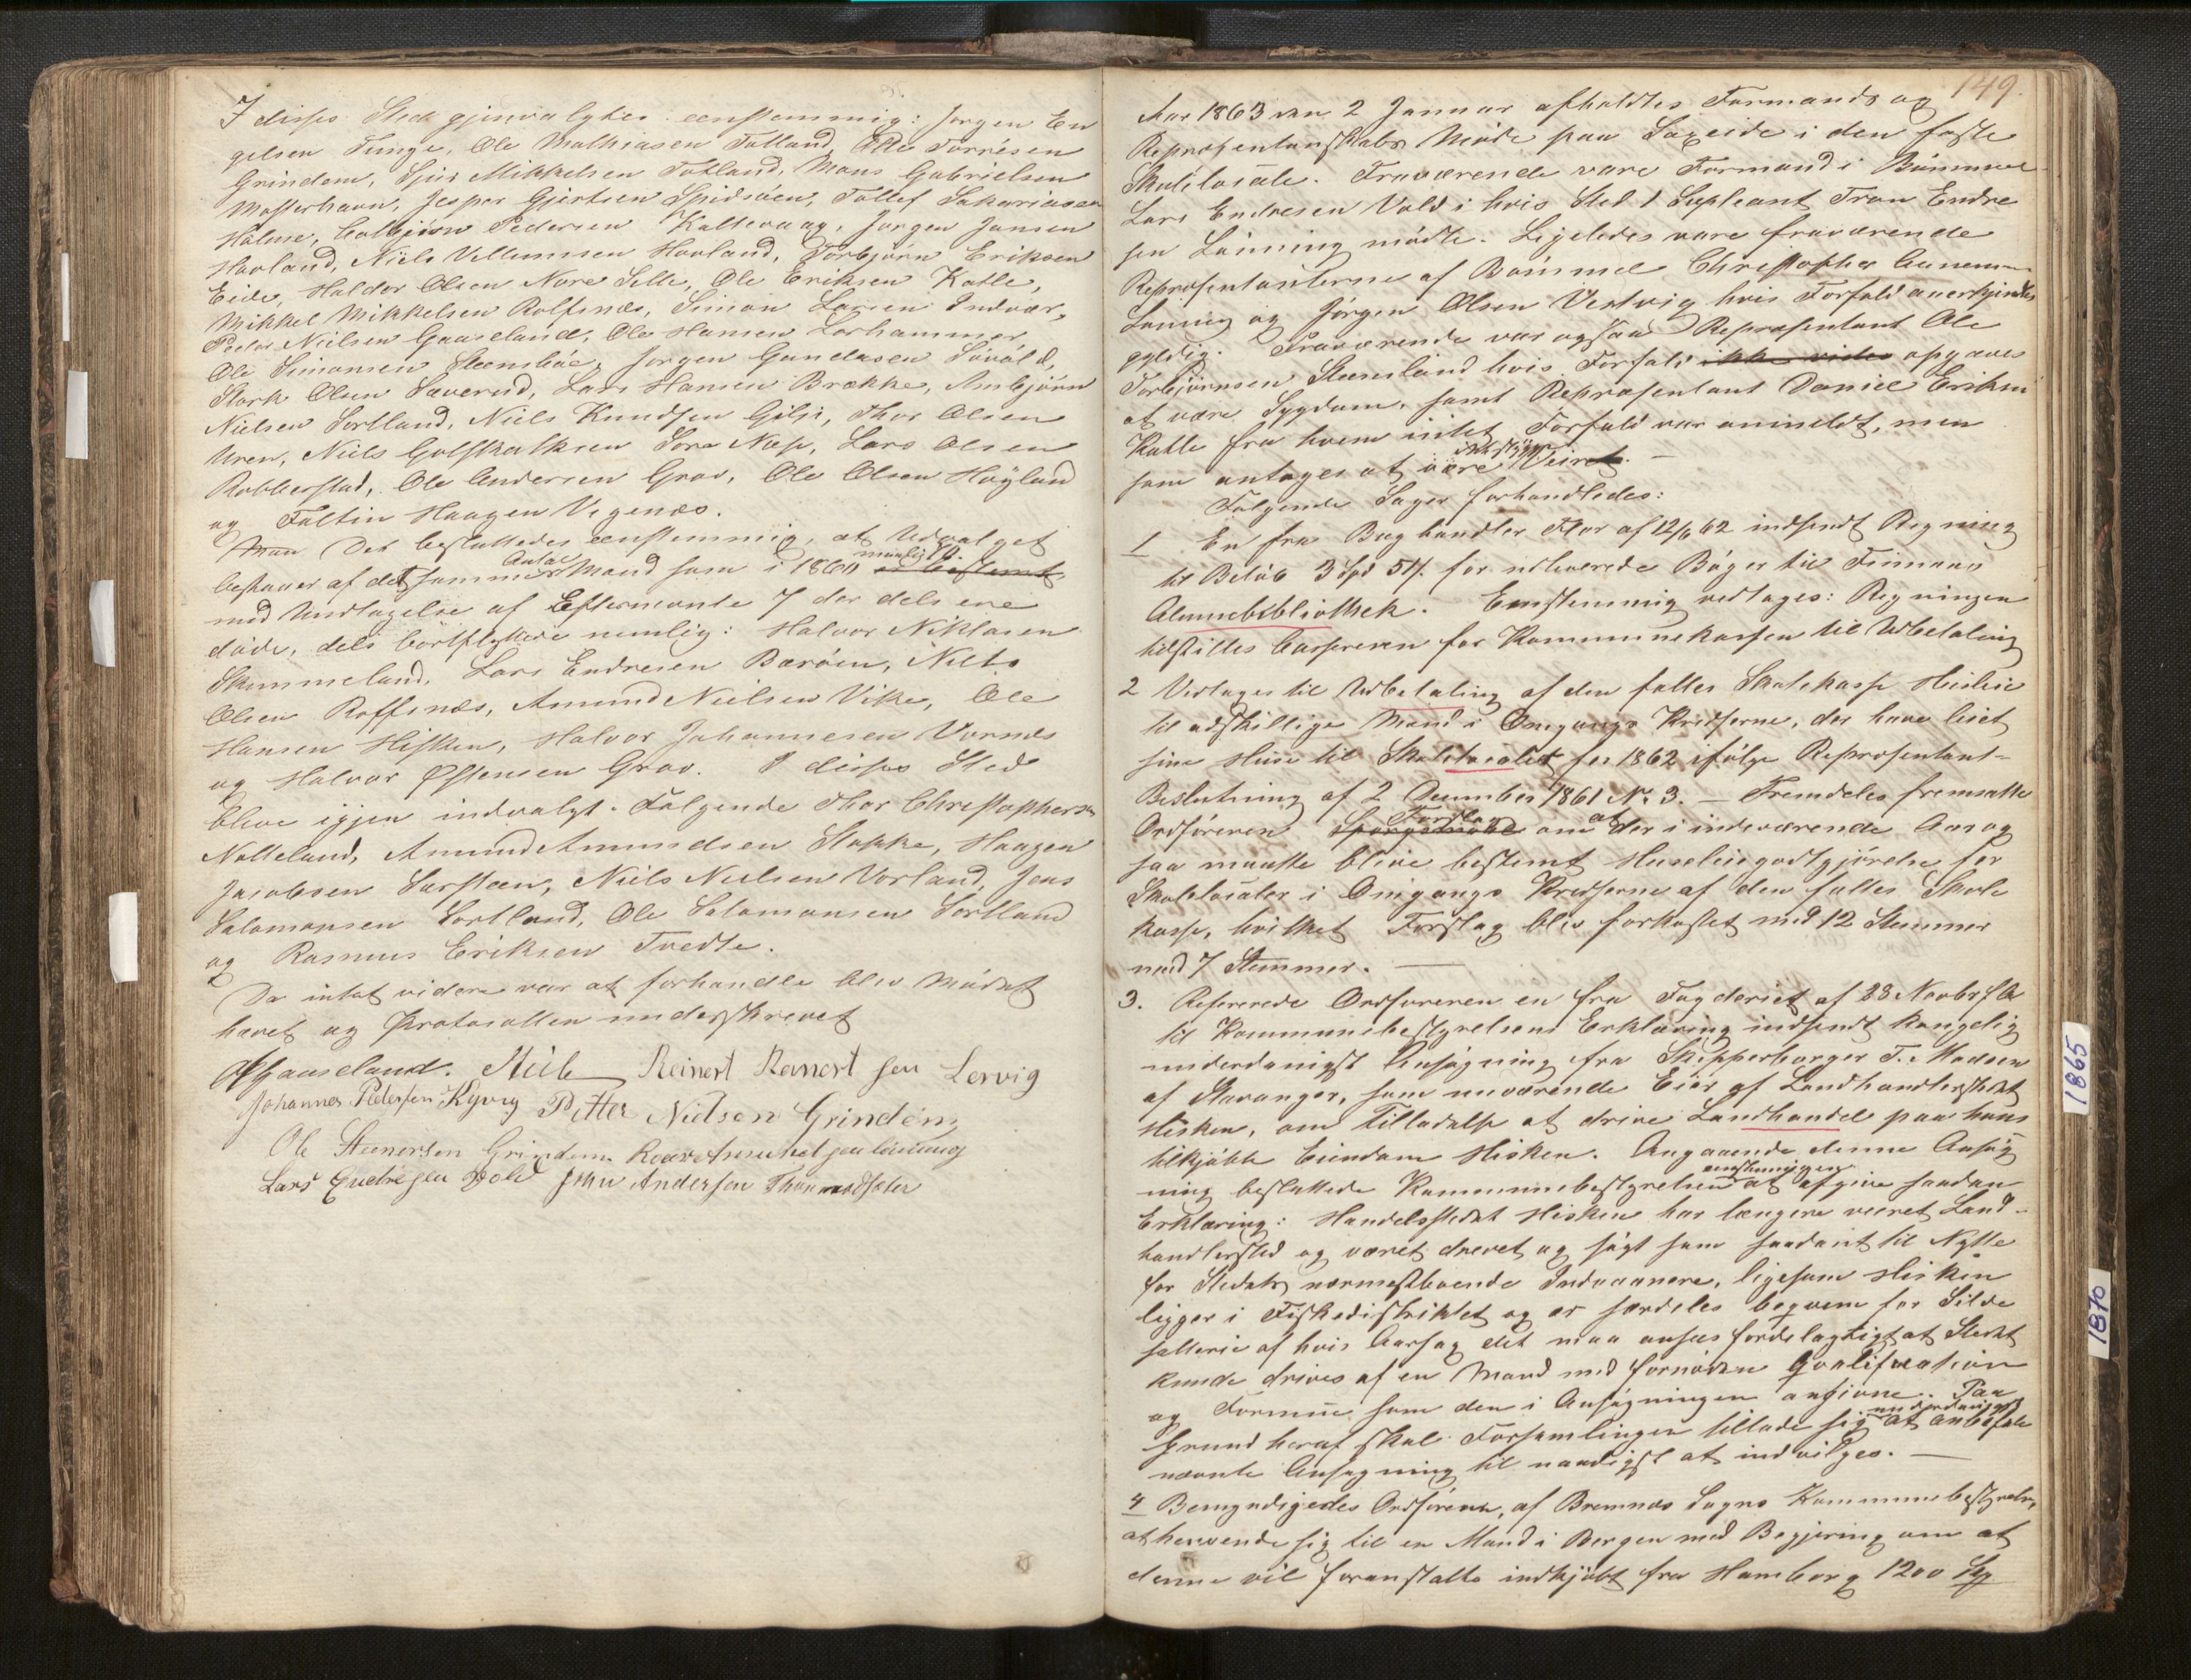 I disses Sted gjenvalgtes eenstemmig: Jørgen En
gelsen Tunge, Ole Mathiasen Totland, Ole Torresen
Grindem, Sjur Mikkelsen Totland, Mons Gabrielsen
Mosterhavn, Jesper Gjertsen Spidsøen, Tollef Sakariasen
Holme, Colbjörn Pedersen Kallevaag, Jørgen Jansen
Hovland, Niels Villumsen Hovland, Torbjörn Eriksen
Eide, Haldor Olsen Nore Selle, Ole Eriksen Katle,
Mikkel Mikkelsen Rolfsnæs, Simon Larsen Indvær,
Peder Nielsen Gaaseland, Ole Hansen Lorhammer
Ole Simonsen Steensböe, Jørgen Gundersen Såvold,
Stork Olsen Sæverud, Lars Hansen Brække, Ambjörn
Nielsen Sortland, Niels Knudsen Gilje, Thor Olsen
Uren, Niels Golskalksen Söre Næs, Lars Olsen
Robberstad, Ole Andersen Grov, Ole Olsen Høyland
og Faltin Haagen Vigenæs.
Man Det besluttedes eenstemmig, at Udvalget
Antal maatte
bestaaer af det samme Mand som i 1860 er bestemt
med Undtagelse af Efternevnte 7 der dels ere
døde, dels bortflyttede nemlig: Halvor Niklasen
Skimmeland, Lars Endresen Bæröen, Niels
Olsen Roffsnæs, Amund Nielsen Vike, Ole
Hansen Hisken, Halvor Johannesen Vornes
og Halvor Østensen Grov. I disses Sted
bleve igjen indvalgt Følgende Thor Christophersen
Nolleland, Amund Amundsen Stokke, Haagen
Jacobsen Sarsteen, Niels Nielsen Vorland, Jens
Salomonsen Sortland, Ole Salomonsen Sortland
og Rasmus Eriksen Tvedte.
Da intet videre var at forhandle blev Mödet
hævet og Protocollen underskrevet
Gaaseland. Reinert Reinert sen Lervig
Johannes Pedersen Kyvig Petter Nielsen Grindem
Ole Steenersen Grindem
Lars Endresen Vold John Andersen
149.
Aar 1863 den 2 Januar afholdtes Formands og
Repræsentantskabs Møde paa Laxeide i den faste
Skolelocale. Fraværende vare Formand i Bömmel
Lars Endresen Vold i hvis Sted 1 Supleant Tron Endre
sen Lönning mödte. Ligeledes vare fraværende
Repræsentanterne af Bömmel Christopher
Loning og Jørgen Olsen Vestvig hvis Forfald anerkjendtes
gyldig. Fraværende var ogsaa Repræsentant Ole
Torbjørnsen Steensland hvis Forfald ikke vides opgaves
at være Sygdom, samt Repræsentant Daniel Eriksen
Katle fra hvem intet Forfald var anmeldt, men
som antages at være Veiret. –
Følgende Sager forhandledes:
1 En fra Boghandler Flor af 12/6 62 indsendt Regning
til Beløb 3 Spd 5 ß. for udleverede Bøger til Finnaas
Almuebibliothek. Eenstemmig vedtoges: Regningen
tilstilles Cassereren for Kommunekassen til Udbetaling
2 Vedtoges til Udbetaling af den fælles Skolekasse Husleie
til adskillige Mænd i Omgangs Kredserne, der have leiet
sine Huse til Skolelocalet for 1862 ifølge Repræsentant-
Beslutning af 2 December 1861 No 3. – Fremdeles fremsatte
Forslag at
Ordføreren Spørgsmaal om der i indeværende Aar og
saa maatte blive bestemt Husleiegodtgjörelse for
Skolelocaler i Omgangs Kredserne af den fælles Skole
kasse, hvilket Forslag blev forkastet med 12 Stemmer
mod 7 Stemmer. —
3. Refererede Ordføreren en fra Fogderiet af 28 Novbr f. A.
til Kommunebestyrelsens Erklæring indsendt kongelig
underdanigst Ansøgning fra Skipperborger T. Madsen
af Stavanger, som nuværende Eier af Landhandlerstedet
Hisken, om Tilladelse at drive Landhandel paa hans
tilkjøbte Eiendom Hisken. Angaaende denne Ansøg
eenstemmigen
ning besluttede Kommunebestyrelsen at afgive saadan
Erklæring: Handelsstedet Hisken har længere været Land-
handlersted og været drevet og søgt som saadant til Nytte
for Stedets nærmestboende Indvaanere, ligesom Hisken
ligger i Fiskedistriktet og er særdeles beqvem for Silde
salterie af hvis Aarsag det maa ansees fordelagtigt at Stedet
kunde drives af en Mand med fornøden Qvalification
og Formue som den i Ansøgningen angivne. Paa
underdanigst
Grund heraf skal Forsamlingen tillade sig at anbefale
nævnte Ansøgning til naadigst at indvilges. —
4 Bemyndigedes Ordføreren, af Bremnæs Sogns Kommunebestyrelse,
at henvende sig til en Mand i Bergen med Begjæring om at
denne vil foranstalte indkjøbt fra Hamborg 1200
1865
1870